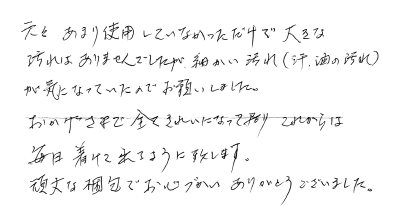 元々 あまり使用していなかっただけで 大きな
汚れは ありませんでしたが、細かい汚れ(汗、油の汚れ)
が気になっていたのでお願いしました。
おかげさまで 全てきれいになって戻り これからは
毎日 着けて来るように致します。
頑丈な梱包でお心づかい ありがとうございました。